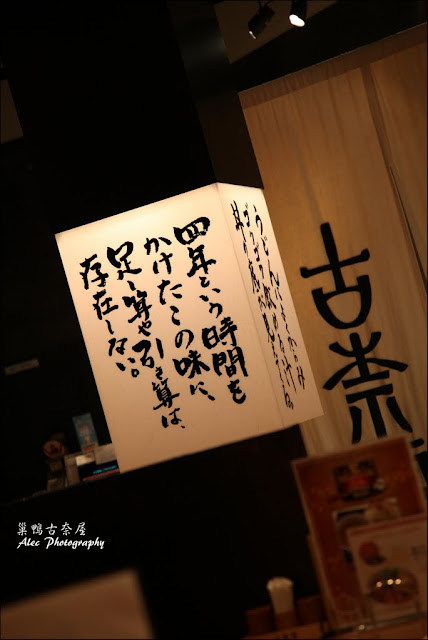 四年という時間を
かけたこの味に、
足し算や引き算は、
存在しない。
古奈
巣鴨古奈屋
Alec Photography